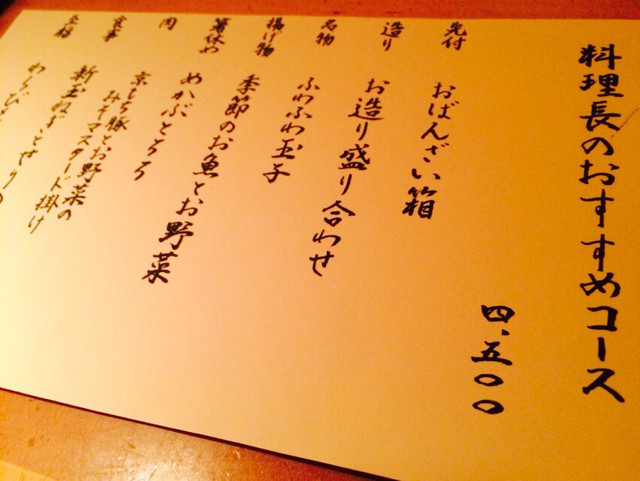 料理長のおすすめコース
四、五〇〇
先付 おばんざい箱
造り お造り盛り合わせ
名物 ふわふわ玉子
揚げ物 季節のお魚とお野菜
箸休め めかぶとろろ
肉 京もち豚とお野菜の
みそマスタード掛け
食事 新玉ねぎとせりの
わらび